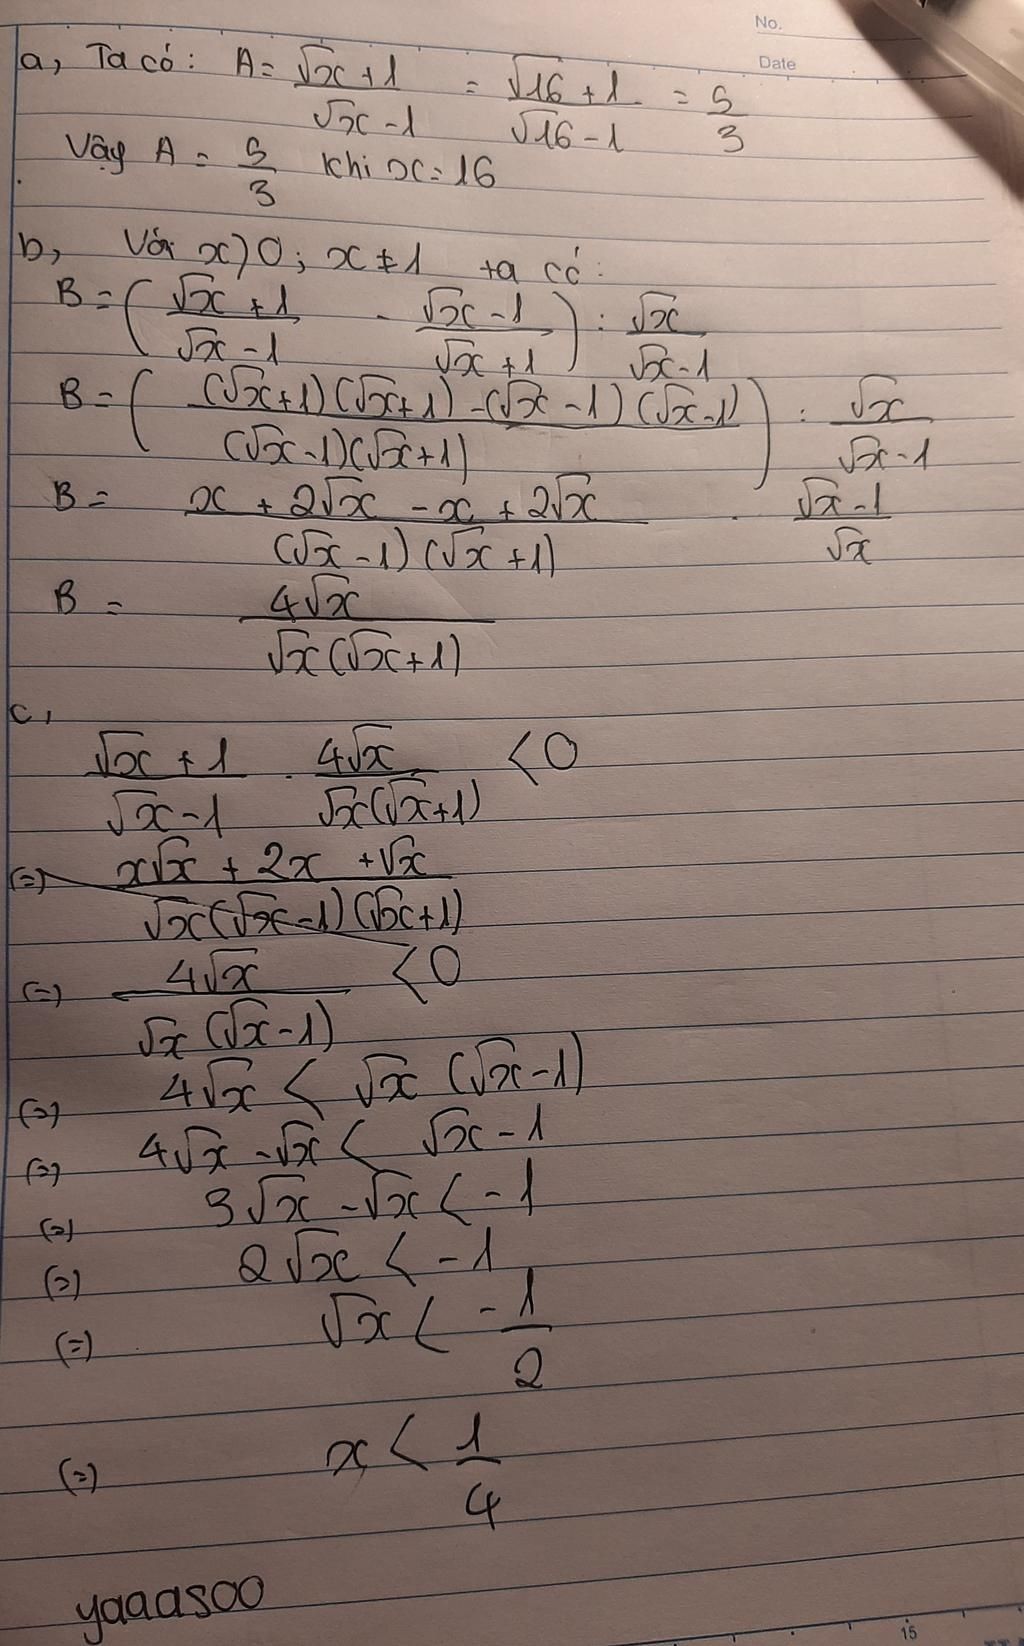 No.
Date
a, Ta có: A = (√x + 1)/(√x - 1) = (√16 + 1)/(√16 - 1) = 5/3
Vậy A = 5/3 khi x = 16
b, Với x > 0; x ≠ 1 ta có:
B = ( (√x + 1)/(√x - 1) - (√x - 1)/(√x + 1) ) : √x/(√x - 1)
B = ( ((√x + 1)(√x + 1) - (√x - 1)(√x - 1))/((√x - 1)(√x + 1)) ) : √x/(√x - 1)
B = (x + 2√x - x + 2√x)/((√x - 1)(√x + 1)) . (√x - 1)/√x
B = 4√x/(√x(√x + 1))
c,
(√x + 1)/(√x - 1) . 4√x/(√x(√x + 1)) < 0
(=) (x√x + 2x + √x)/(√x(√x - 1)(√x + 1))
(=) 4√x/(√x(√x - 1)) < 0
(=) 4√x < √x(√x - 1)
(=) 4√x - √x < √x - 1
(=) 3√x - √x < -1
(=) 2√x < -1
(=) √x < -1/2
(=) x < 1/4
yaaasoo
15